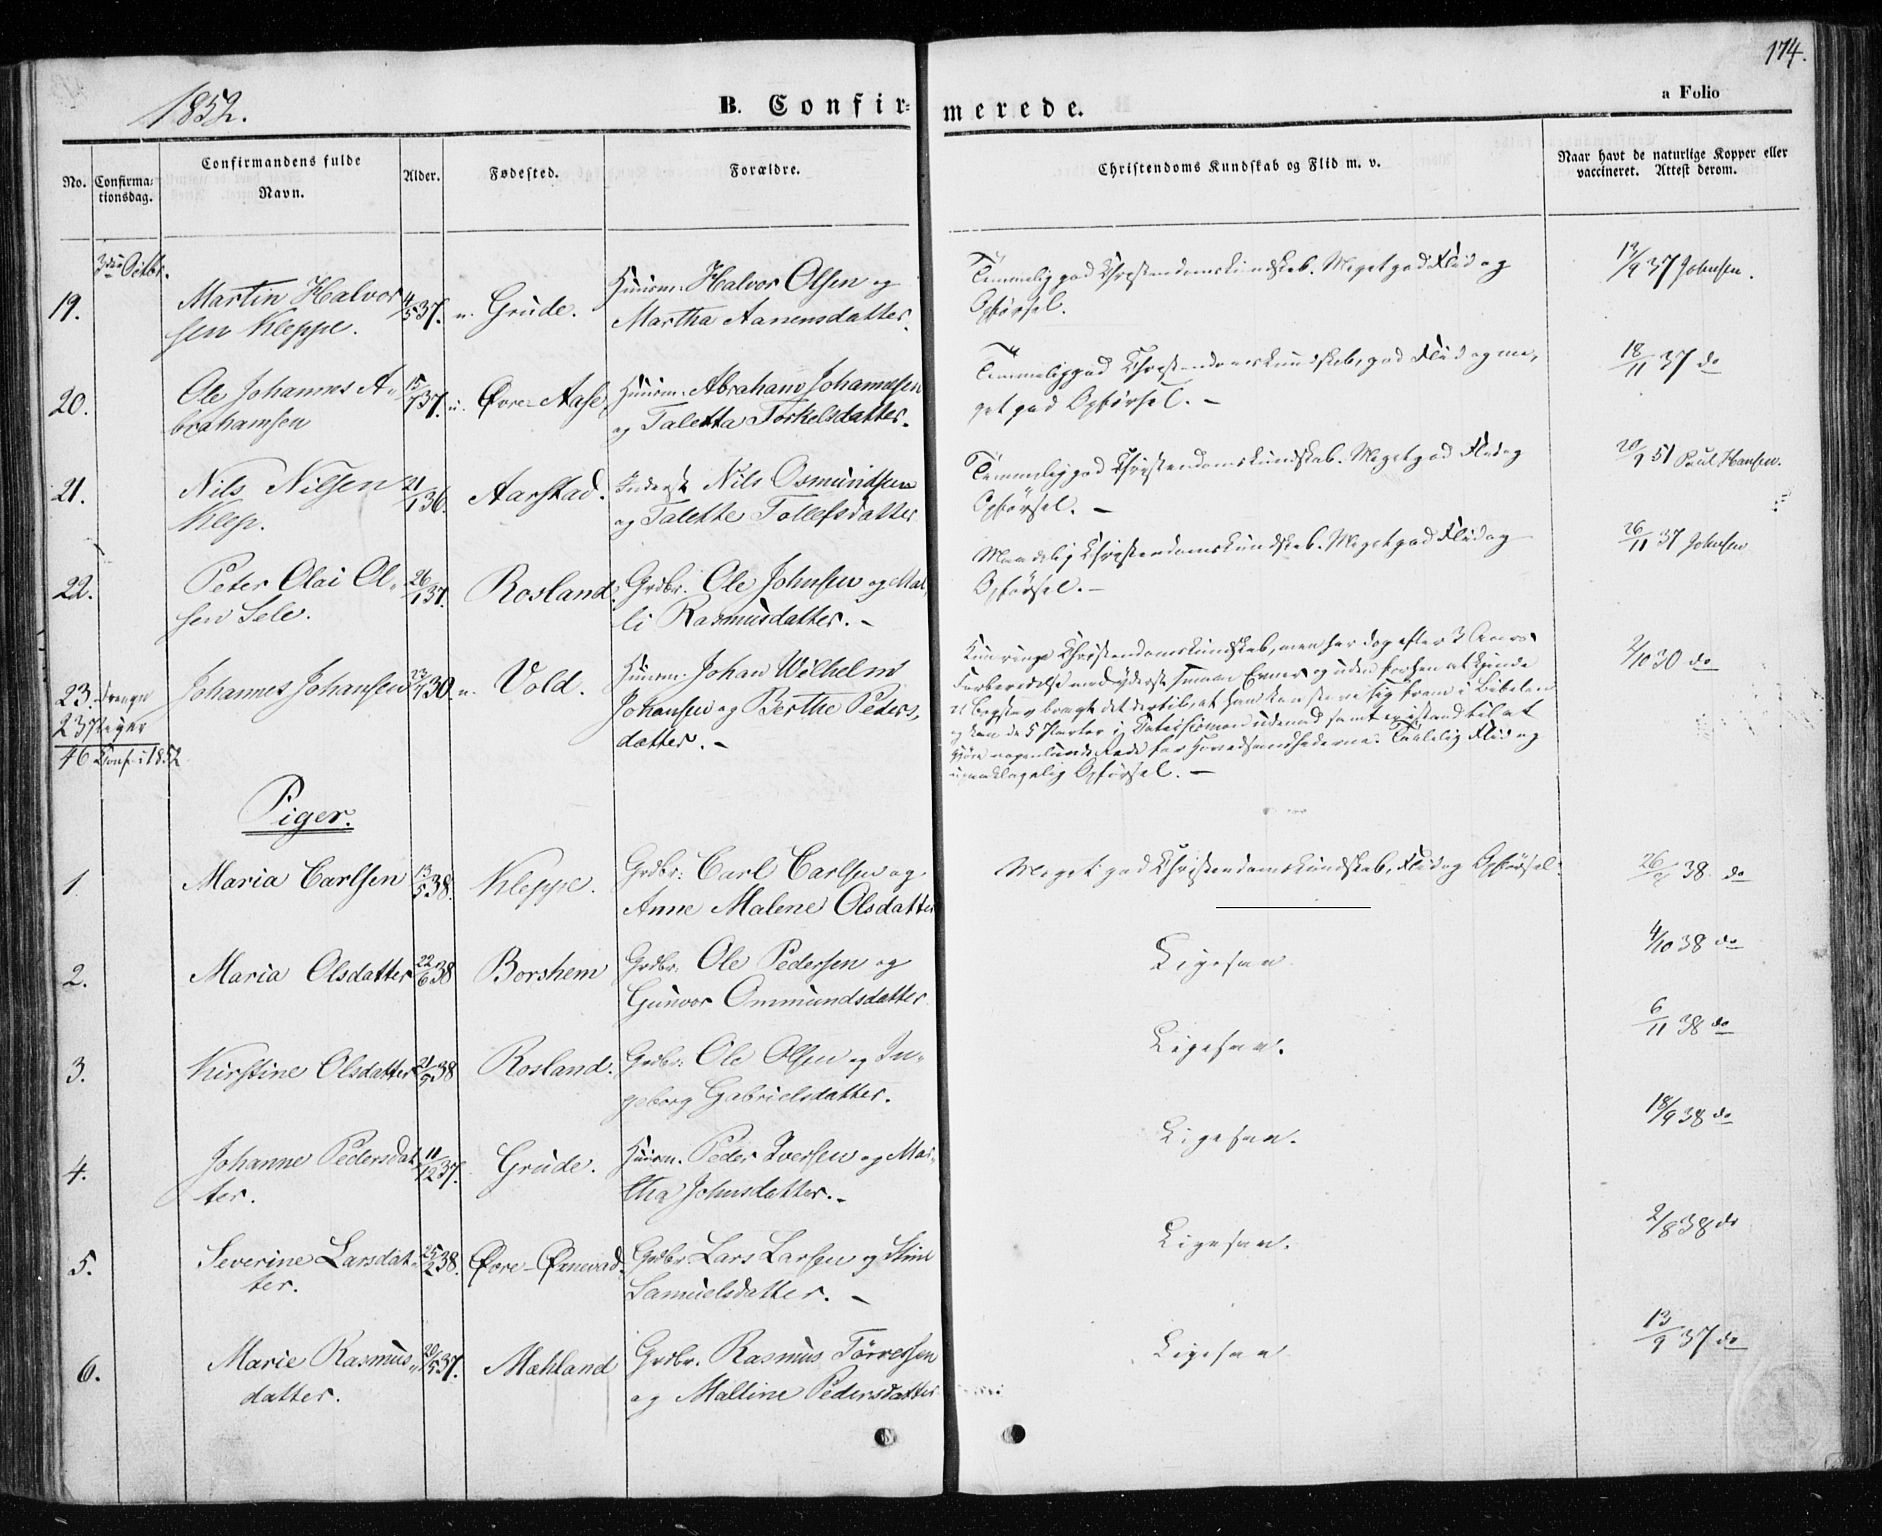 174.
1852.
B. Confir-
merede.
a Folio
No.
Confirma-
tionsdag.
Confirmandens fulde
Navn.
Alder.
Fødested.
Forældre.
Christendoms Kundskab og Flid m. v.
Naar havt de naturlige Kopper eller
vaccineret. Attest derom.
3die Octbr.
19.
Martin Halvor
sen Kleppe.
4/5 37.
Grude.
Huusm. Halvor Olsen og
Martha Aanensdatter.
Temmelig god Christendomskundskab. Meget god Flid og
Opførsel.
13/9 37 Johnsen.
20.
Ole Johannes A-
brahamsen
37.
Øvre-Aase
Huusm. Abraham Johannessen
og Taletta Torkelsdatter.
Temmelig god Christendomskundskab, god Flid og me-
get god Opførsel. -
18/11 37 do
21.
Nils Nilsen
Klep.
21/1 36.
Aarstad.
Inderst Nils Osmundsen
og Talette Tollefsdatter
Temmelig god Christendomskundskab. Meget god Flid og
Opførsel. -
20/9 51 Paul Hansen.
22.
Peter Olai Ol-
sen Sele.
26/1 37.
Rosland.
Grdbr. Ole Johnsen og Mal-
li Rasmusdatter. -
Maadelig Christendomskundskab. Meget god Flid og
Opførsel. -
26/11 37 Johnsen
23. Drenge
23 Piger
46 Conf. i 1852
Johannes Johansen
30.
Vold.
Huusm. Johan Wilhelm
Johansen og Berthe Peders-
datter. -
Kun ringe Christendomskundskab, men har dog efter 3 Aars
Forberedelse med yderst smaa Evner og uden forhen at kjende
et Bogstav bragt det dertil, at han kan stave sig frem i Bibelen
og kan de 5 Parter i Catechismen udenad samt er istand til at
gjøre nogenlunde Rede for Hovedsandhederne. Taalelig Flid og
upaaklagelig Opførsel. -
2/10 30 do
Piger.
1.
Maria Carlsen
13/5 38.
Kleppe.
Grdbr: Carl Carlsen og
Anne Malene Olsdatter
Meget god Christendomskundskab, Flid og Opførsel.
38 do
2.
Maria Olsdatter
22/6 38
Borshem
Grdbr. Ole Pedersen og
Gunvor Ommundsdatter
Ligesaa
4/10 38 do
3.
Kirstine Olsdatter
21/9 38
Rosland.
Grdbr: Ole Olsen og In-
geborg Gabrielsdatter.
Ligesaa.
6/11 38 do
4.
Johanne Pedersdat-
ter.
11/12 37.
Grude.
Huusm. Peder Iversen og Mar-
tha Johnsdatter. -
Ligesaa.
18/9 38 do
5.
Severine Larsdat-
ter.
25/2 38.
Øvre-Øxnevad.
Grdbr. Lars Larsen og Stine
Samuelsdatter. -
Ligesaa.
2/8 38 do
6.
Marie Rasmus-
datter.
20/5 37.
Mæhland
Grdbr. Rasmus Tørressen
og Malline Pedersdatter
Ligesaa
13/9 37 do